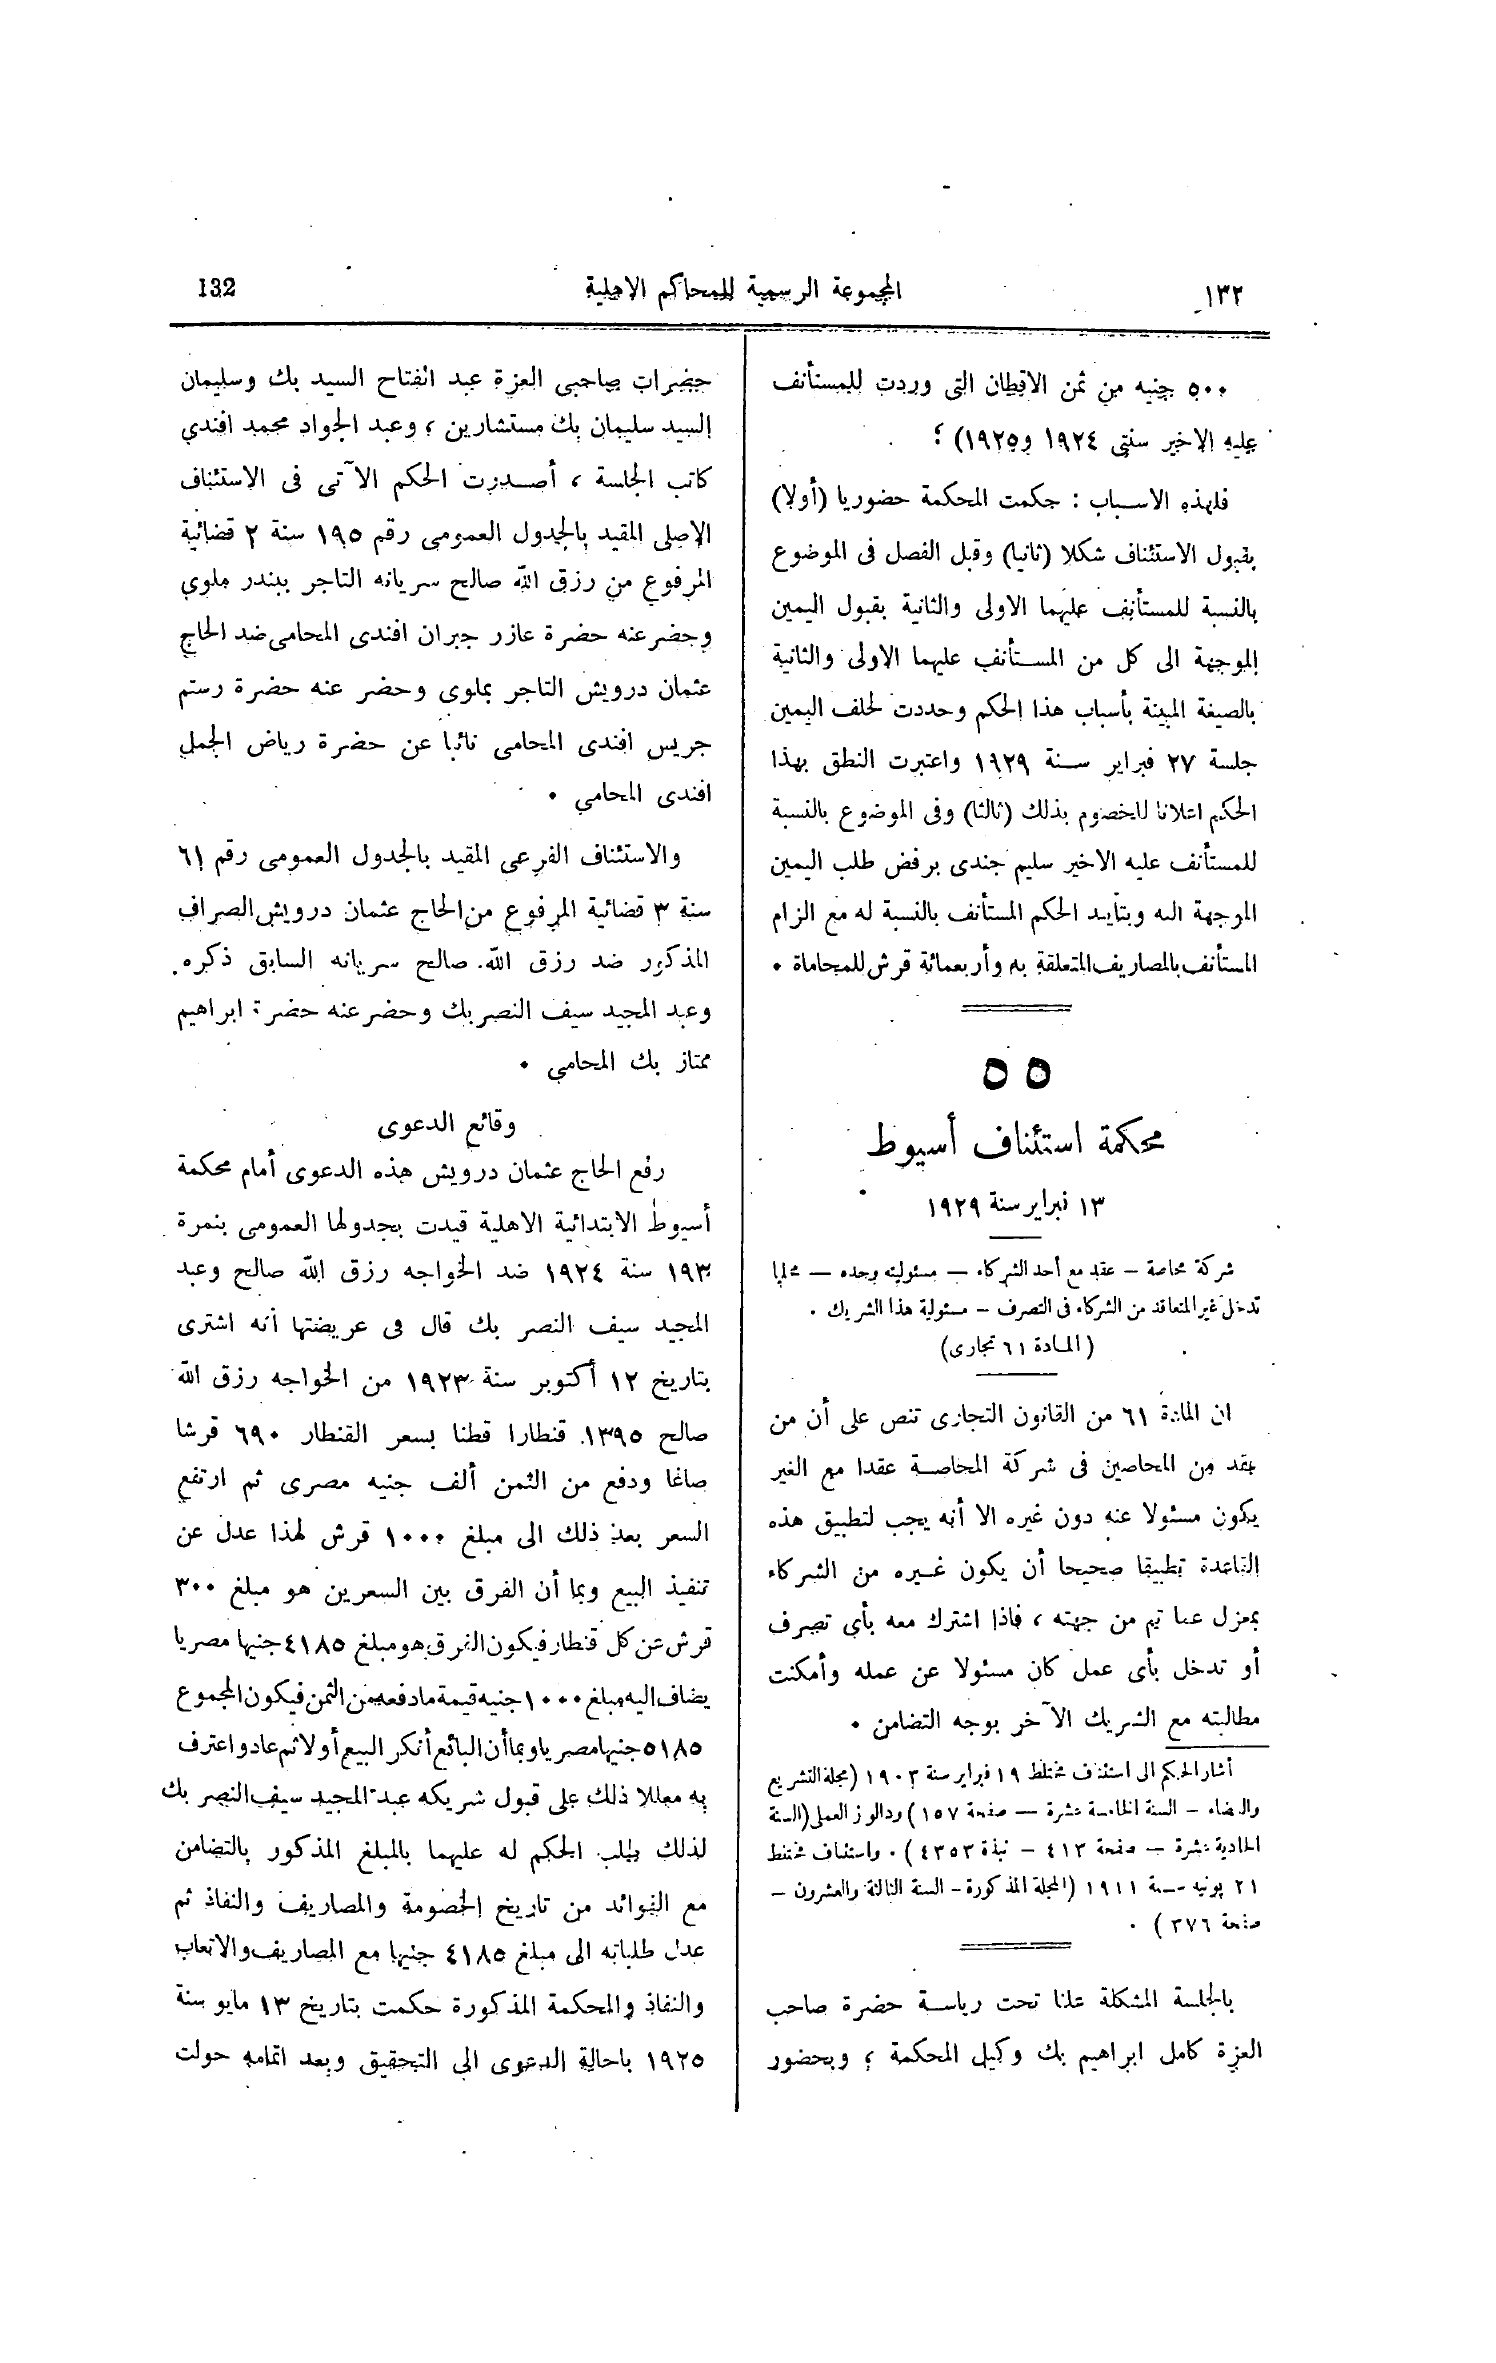 ١٣٢
المجموعة الرسمية للمحاكم الاهلية
132
٥٠٠ جنيه من ثمن الاقطان التى وردت للمستأنف
عليه الاخير سنتى ١٩٢٤ و١٩٢٥) ؛
فلهذه الاسباب : حكمت المحكمة حضوريا (أولا)
بقبول الاستئناف شكلا (ثانيا) وقبل الفصل فى الموضوع
بالنسبة للمستأنف عليهما الاولى والثانية بقبول اليمين
الموجهة الى كل من المستأنف عليهما الاولى والثانية
بالصيغة المبينة بأسباب هذا الحكم وحددت لحلف اليمين
جلسة ٢٧ فبراير سنة ١٩٢٩ واعتبرت النطق بهذا
الحكم اعلانا للخصوم بذلك (ثالثا) وفى الموضوع بالنسبة
للمستأنف عليه الاخير سليم جندى برفض طلب اليمين
الموجهة اليه وبتأييد الحكم المستأنف بالنسبة له مع الزام
المستأنف بالمصاريف المتعلقة به وأربعمائة قرش للمحاماة .
٥٥
محكمة استئناف أسيوط
١٣ فبراير سنة ١٩٢٩
شركة محاصة – عقد مع أحد الشركاء – مسئوليته وحده –
تدخل غير المتعاقد من الشركاء فى التصرف – مسئولية هذا الشريك .
(المادة ٦١ تجارى)
ان المادة ٦١ من القانون التجارى تنص على أن من
عقد من المحاصين فى شركة المحاصة عقدا مع الغير
يكون مسئولا عنه دون غيره الا أنه يجب لتطبيق هذه
القاعدة تطبيقا صحيحا أن يكون غيره من الشركاء
بمعزل عما تم من جهته ، فاذا اشترك معه بأى تصرف
أو تدخل بأى عمل كان مسئولا عن عمله وأمكنت
مطالبته مع الشريك الآخر بوجه التضامن .
أشار الحكم الى استئناف مختلط ١٩ فبراير سنة ١٩٠٣ (مجلة التشريع
والقضاء – السنة الخامسة عشرة – صفحة ١٥٧) ودالوز العملى (السنة
الحادية عشرة – صفحة ٤١٣ – نبذة ٤٣٥٣) . واستئناف مختلط
٢١ يونيه سنة ١٩١١ (المجلة المذكورة – السنة الثالثة والعشرون –
صفحة ٣٧٦) .
بالجلسة المشكلة علنا تحت رياسة حضرة صاحب
العزة كامل ابراهيم بك وكيل المحكمة ؛ وبحضور
حضرات صاحبى العزة عبد الفتاح السيد بك وسليمان
السيد سليمان بك مستشارين ، وعبد الجواد محمد افندي
كاتب الجلسة ، أصدرت الحكم الآتى فى الاستئناف
الاصلى المقيد بالجدول العمومى رقم ١٩٥ سنة ٢ قضائية
المرفوع من رزق الله صالح سريانه التاجر ببندر ملوي
وحضر عنه حضرة عازر جبران افندى المحامى ضد الحاج
عثمان درويش التاجر بملوى وحضر عنه حضرة رستم
جريس افندى المحامى نائبا عن حضرة رياض الجمل
افندى المحامي .
والاستئناف الفرعى المقيد بالجدول العمومى رقم ٦١
سنة ٣ قضائية المرفوع من الحاج عثمان درويش الصراف
المذكور ضد رزق الله صالح سريانه السابق ذكره
وعبد المجيد سيف النصر بك وحضر عنه حضرة ابراهيم
ممتاز بك المحامي .
وقائع الدعوى
رفع الحاج عثمان درويش هذه الدعوى أمام محكمة
أسيوط الابتدائية الاهلية قيدت بجدولها العمومى بنمرة
١٩٣ سنة ١٩٢٤ ضد الخواجه رزق الله صالح وعبد
المجيد سيف النصر بك قال فى عريضتها أنه اشترى
بتاريخ ١٢ أكتوبر سنة ١٩٢٣ من الخواجه رزق الله
صالح ١٣٩٥ قنطارا قطنا بسعر القنطار ٦٩٠ قرشا
صاغا ودفع من الثمن ألف جنيه مصرى ثم ارتفع
السعر بعد ذلك الى مبلغ ١٠٠٠ قرش لهذا عدل عن
تنفيذ البيع وبما أن الفرق بين السعرين هو مبلغ ٣٠٠
قرش عن كل قنطار فيكون الفرق هو مبلغ ٤١٨٥ جنيها مصريا
يضاف اليه مبلغ ١٠٠٠ جنيه قيمة ما دفعه من الثمن فيكون المجموع
٥١٨٥ جنيها مصريا وبما أن البائع أنكر البيع أولا ثم عاد واعترف
به معللا ذلك على قبول شريكه عبد المجيد سيف النصر بك
لذلك طلب الحكم له عليهما بالمبلغ المذكور بالتضامن
مع الفوائد من تاريخ الخصومة والمصاريف والنفاذ ثم
عدل طلباته الى مبلغ ٤١٨٥ جنيها مع المصاريف والاتعاب
والنفاذ والمحكمة المذكورة حكمت بتاريخ ١٣ مايو سنة
١٩٢٥ باحالة الدعوى الى التحقيق وبعد اتمامه حولت